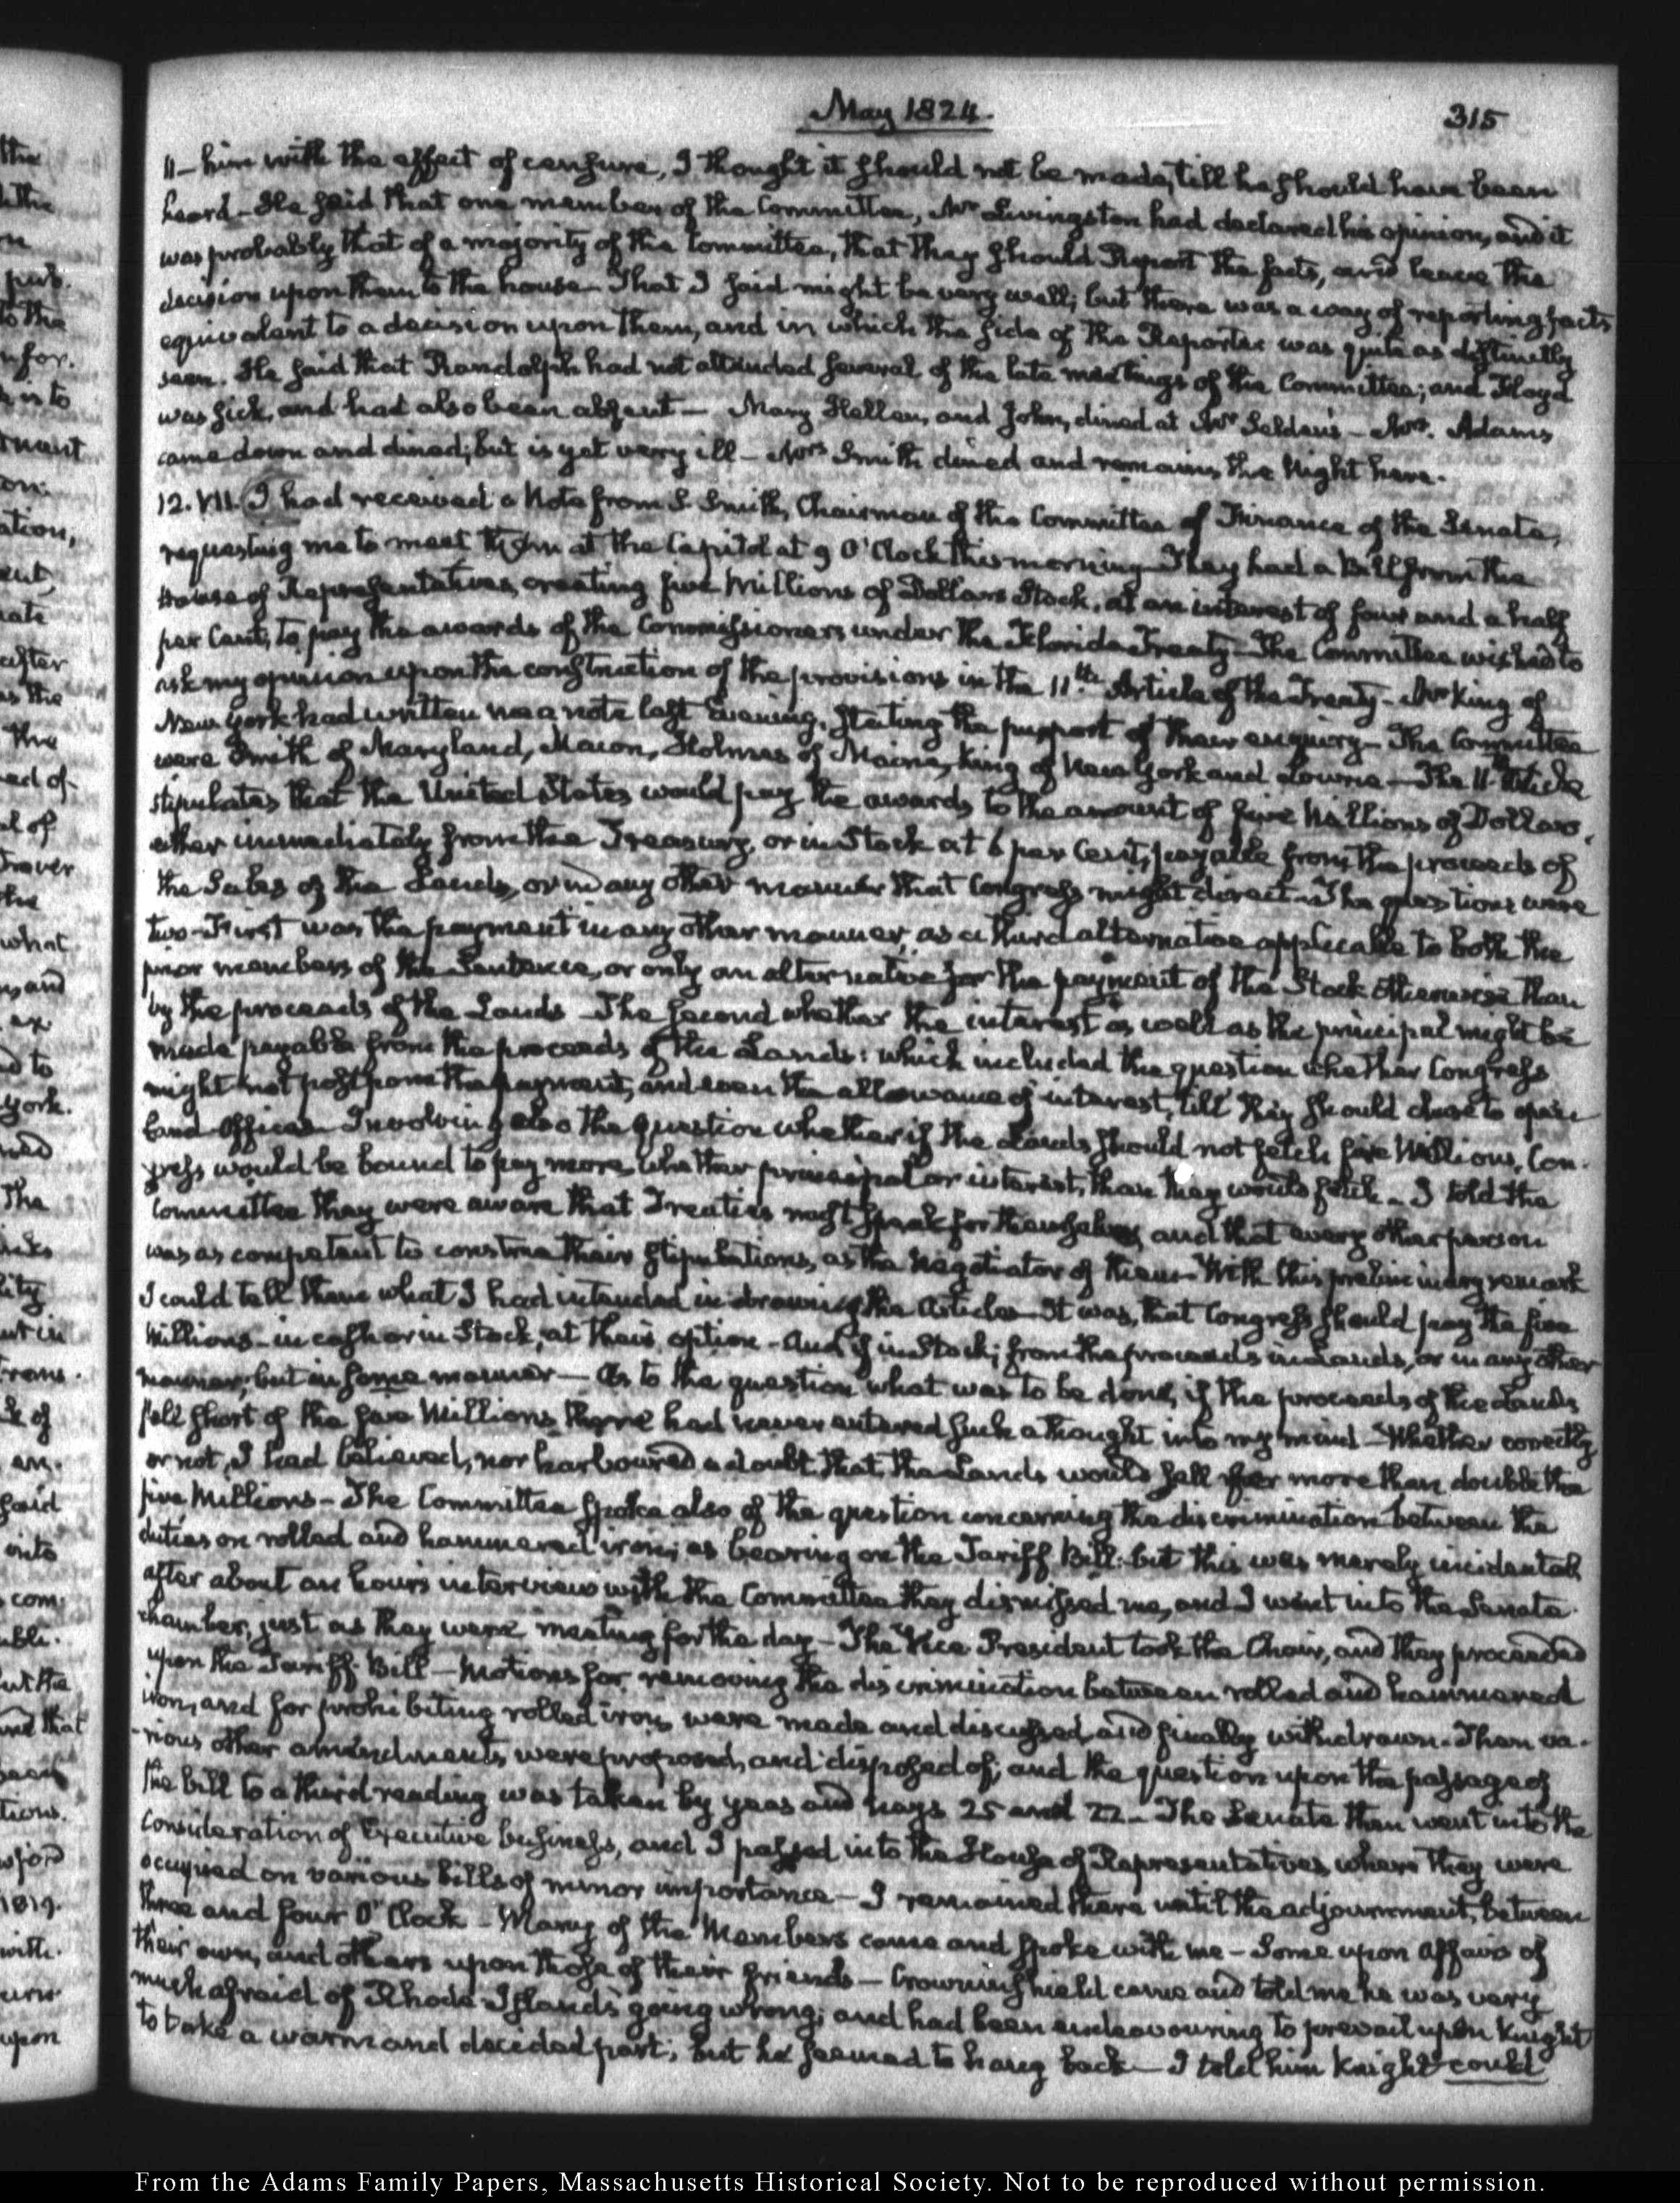 May 1824.
315
11 – him with the effect of censure, I thought it should not be made, till he should have been
heard – He said that one member of the Committee, Mr Livingston had declared his opinion, and it
was probably that of a majority of the Committee, that they should Report the facts, and leave the
decision upon them to the house – That I said might be very well; but there was a way of reporting facts
equivalent to a decision upon them, and in which the side of the Reporter was quite as distinctly
seen. He said that Randolph had not attended several of the late meetings of the Committee; and Floyd
was sick, and had also been absent – Mary Hellen, and John, dined at Mr Selden's – Mrs. Adams
came down and dined; but is yet very ill – Mrs Smith dined and remains the Night here.
12. VII. I had received a Note from S. Smith, Chairman of the Committee of Finance of the Senate,
requesting me to meet them at the Capitol at 9 O'Clock this morning – They had a Bill from the
House of Representatives, creating five Millions of Dollars Stock, at an interest of four and a half
per Cent, to pay the awards of the Commissioners under the Florida Treaty – The Committee wished to
ask my opinion upon the construction of the provisions in the 11th Article of the Treaty – Mr King of
New York had written me a note last Evening, stating the purport of their enquiry – The Committee
were Smith of Maryland, Macon, Holmes of Maine, King of New York and Lowrie – The 11th Article
stipulates that the United States would pay the awards, to the amount of five Millions of Dollars,
either immediately from the Treasury, or in Stock at 6 per Cent, payable from the proceeds of
the Sales of the Lands, or in any other manner that Congress might direct – The questions were
two – First was the payment in any other manner, as a third alternative applicable to both the
prior members of the Sentence, or only an alternative for the payment of the Stock otherwise than
by the proceeds of the Lands – The second whether the interest as well as the principal might be
made payable from the proceeds of the Lands: which included the question whether Congress
might not postpone the payment, and even the allowance of interest, till they should chuse to open
Land Offices – Involving also the question whether if the Lands should not fetch five Millions, Con-
gress would be bound to pay more, whether principal or interest, than they would fetch – I told the
Committee they were aware that Treaties must speak for themselves, and that every other person
was as competent to construe their stipulations, as the Negotiator of them – With this preliminary remark
I could tell them what I had intended in drawing the Article – It was, that Congress should pay the five
Millions – in cash or in Stock, at their option – And if in Stock; from the proceeds in Lands, or in any other
manner; but in some manner – As to the question what was to be done, if the proceeds of the Lands
fell short of the five Millions there had never entered such a thought into my mind – Whether correctly
or not, I had believed, nor harboured a doubt that the Lands would sell for more than double the
five Millions – The Committee spoke also of the question concerning the discrimination between the
duties on rolled and hammered iron; as bearing on the Tariff Bill: but this was merely incidental,
after about an hour's interview with the Committee they dismissed me, and I went into the Senate
chamber, just as they were meeting for the day – The Vice President took the Chair, and they proceeded
upon the Tariff Bill – Motions for removing the discrimination between rolled and hammered
iron, and for prohibiting rolled iron, were made and discussed, and finally withdrawn. Then va-
rious other amendments were proposed, and disposed of; and the question upon the passage of
the bill to a third reading was taken by yeas and nays 25 and 22 – The Senate then went into the
consideration of Executive business, and I passed into the House of Representatives, where they were
occupied on various bills of minor importance – I remained there until the adjournment, between
three and four O'Clock – Many of the Members came and spoke with me – Some upon affairs of
their own, and others upon those of their friends – Crowninshield came and told me he was very
much afraid of Rhode Island's going wrong; and had been endeavouring to prevail upon Knight
to take a warm and decided part; but he seemed to hang back – I told him Knight could
From the Adams Family Papers, Massachusetts Historical Society. Not to be reproduced without permission.